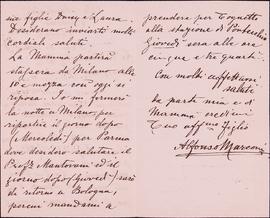 sue figlie Daisy e Laura.
Desiderano inviarti molti
cordiali saluti.
La Mamma partirà
stasera da Milano alle
10 e mezza così oggi si
riposa. Io mi fermerò
la notte a Milano, per
ripartire il giorno dopo
(Mercoledì) per Parma
dove desidero salutare il
Prof. Mantovani ed il
giorno dopo (Giovedì) sarò
di ritorno a Bologna,
percui mandami a
prendere per Tognetto
alla stazione di Pontecchio
Giovedì sera alle ore
cinque e tre quarti.
Con molti affettuosi
saluti
da parte mia e di
Mamma credimi
Tuo aff.mo figlio
Alfonso Marconi